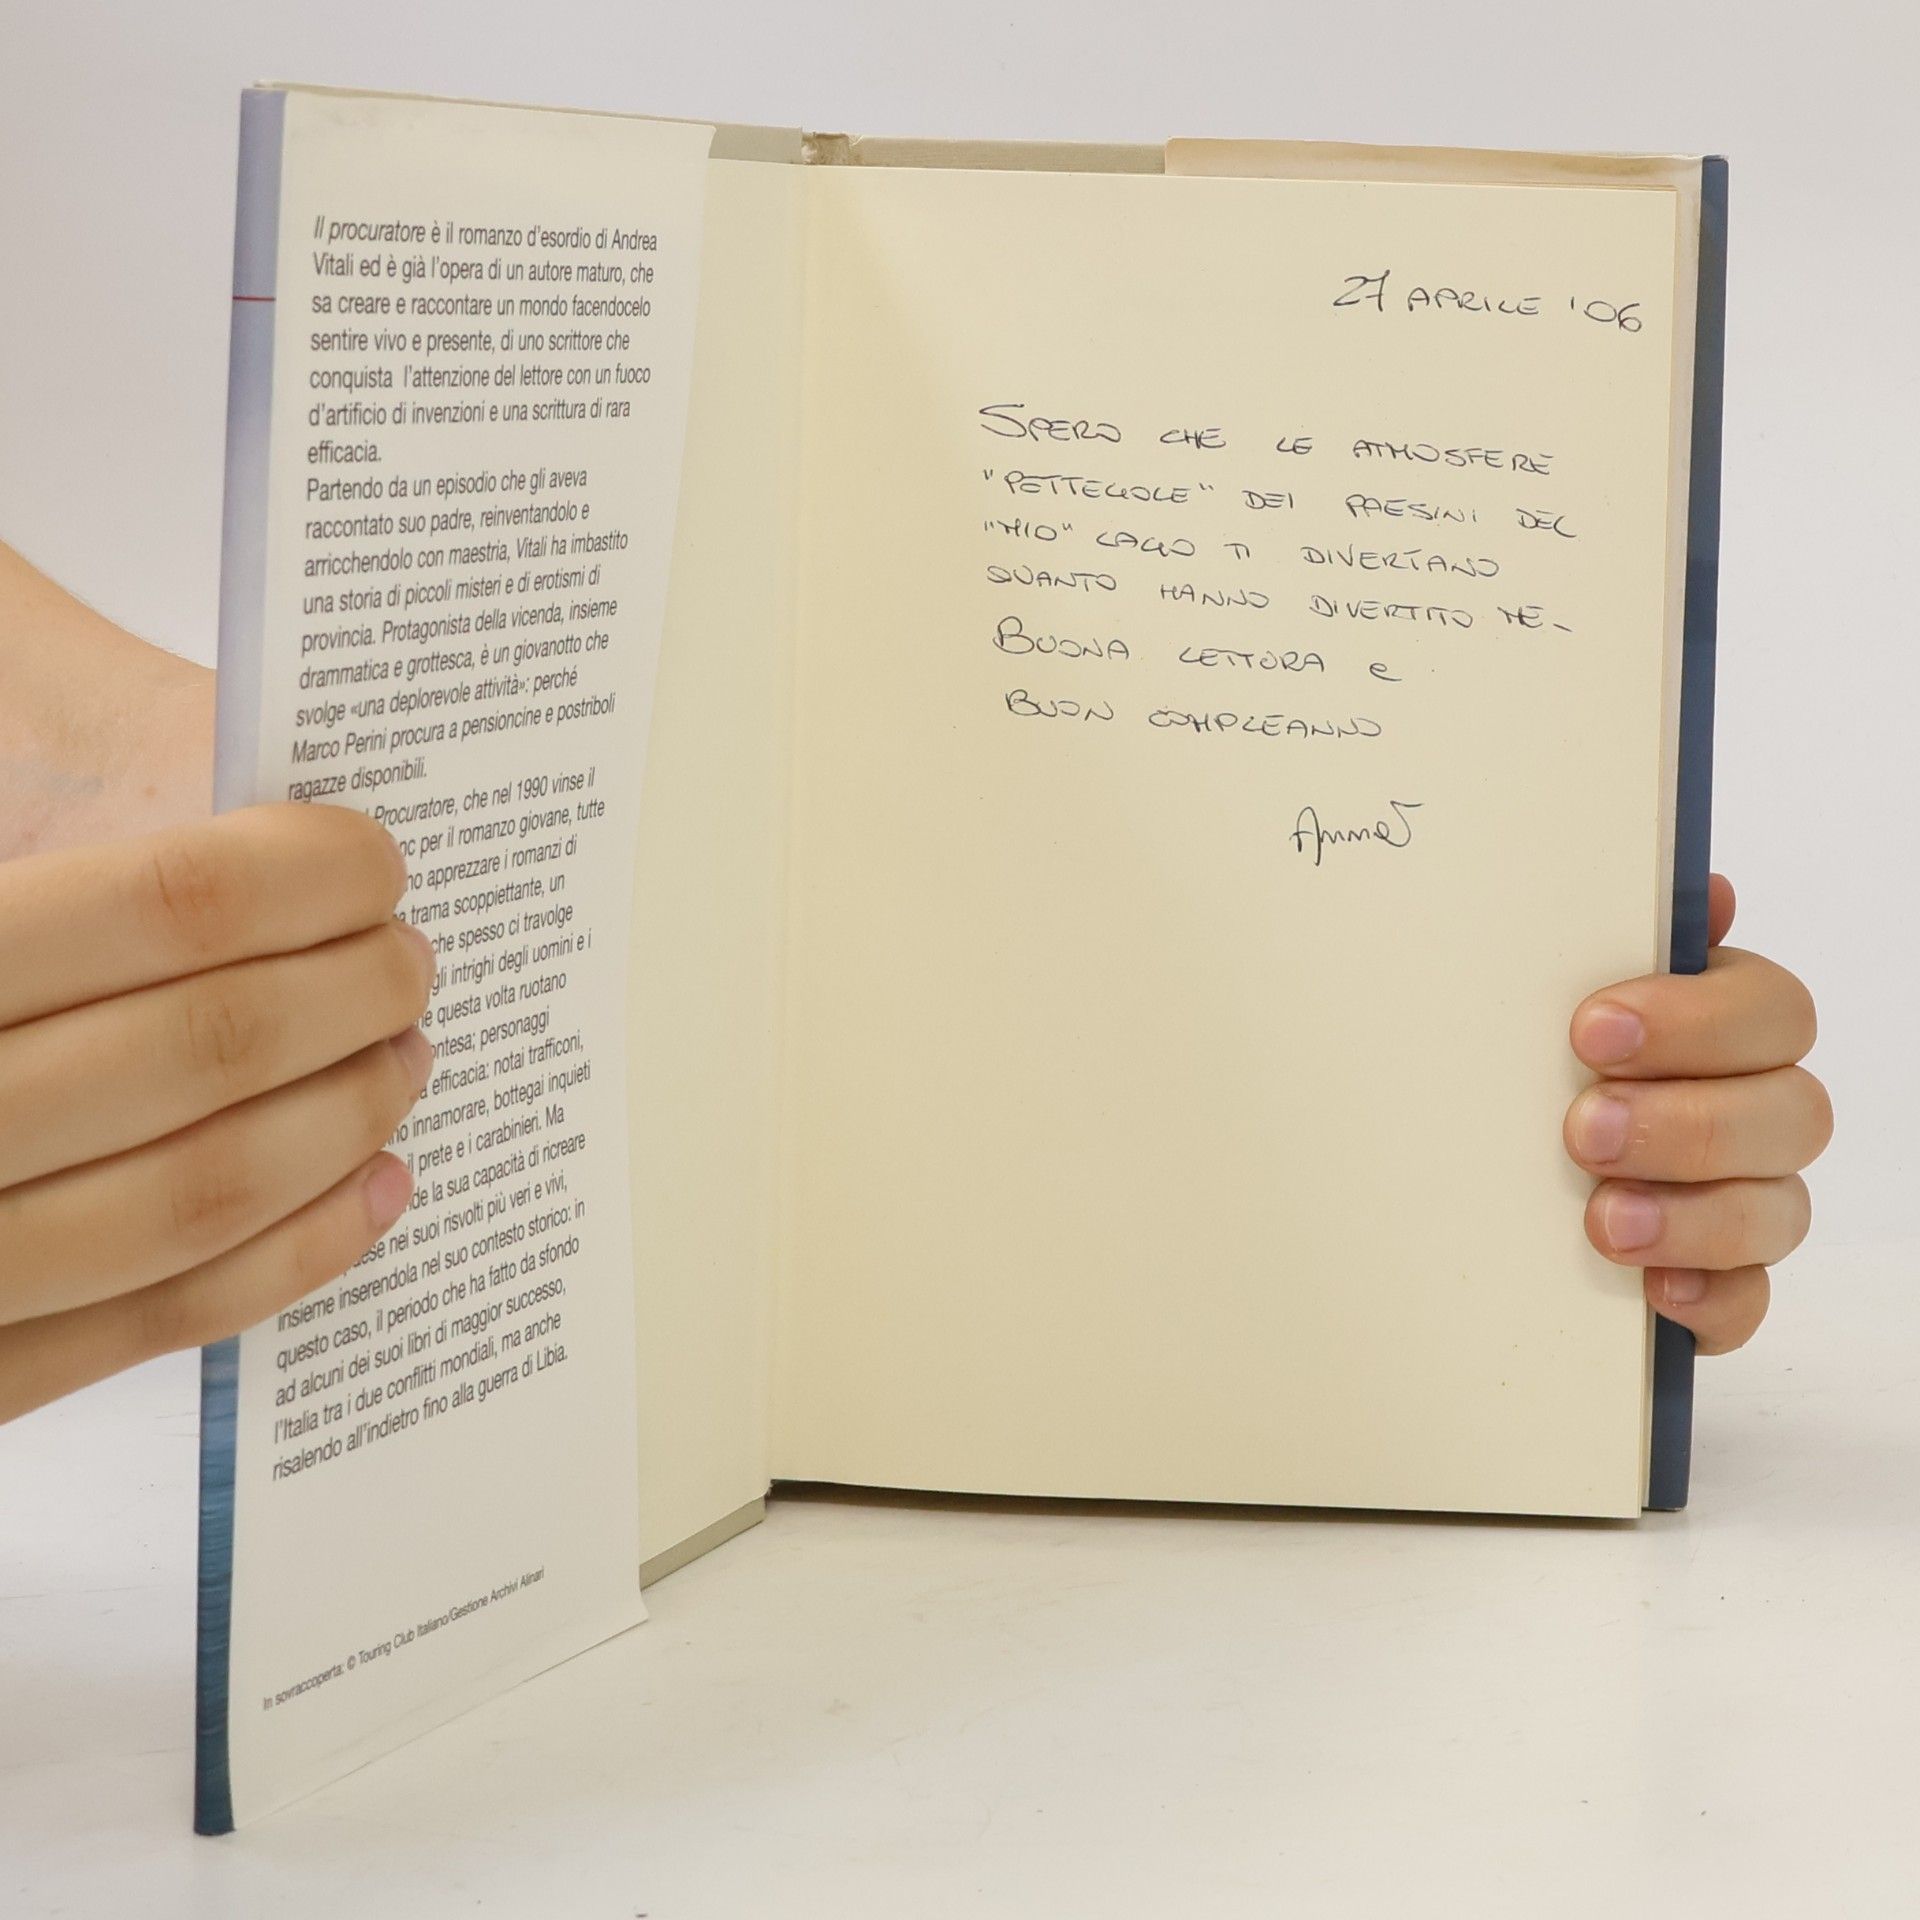 Il procuratore è il romanzo d'esordio di Andrea
Vitali ed è già l'opera di un autore maturo, che
sa creare e raccontare un mondo facendocelo
sentire vivo e presente, di uno scrittore che
conquista l'attenzione del lettore con un fuoco
d'artificio di invenzioni e una scrittura di rara
efficacia.
Partendo da un episodio che gli aveva
raccontato suo padre, reinventandolo e
arricchendolo con maestria, Vitali ha imbastito
una storia di piccoli misteri e di erotismi di
provincia. Protagonista della vicenda, insieme
drammatica e grottesca, è un giovanotto che
svolge «una deplorevole attività»: perché
Marco Perini procura a pensioncine e postriboli
ragazze disponibili.
Procuratore, che nel 1990 vinse il
per il romanzo giovane, tutte
apprezzare i romanzi di
trama scoppiettante, un
che spesso ci travolge
gli intrighi degli uomini e i
questa volta ruotano
personaggi
efficacia: notai trafficoni,
innamorare, bottegai inquieti
il prete e i carabinieri. Ma
la sua capacità di ricreare
nei suoi risvolti più veri e vivi,
insieme inserendola nel suo contesto storico: in
questo caso, il periodo che ha fatto da sfondo
ad alcuni dei suoi libri di maggior successo,
l'Italia tra i due conflitti mondiali, ma anche
risalendo all'indietro fino alla guerra di Libia.
In sovraccoperta: © Touring Club Italiano/Gestione Archivi Alinari
27 APRILE '06
SPERO CHE LE ATMOSFERE
"PETTEGOLE" DEI PAESINI DEL
"MIO" LAGO TI DIVERTANO
QUANTO HANNO DIVERTITO ME-
BUONA LETTURA e
BUON COMPLEANNO